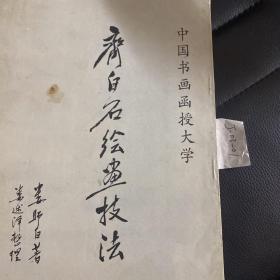 中国书画函授大学
齊白石绘画技法
娄师白著
娄述泽整理